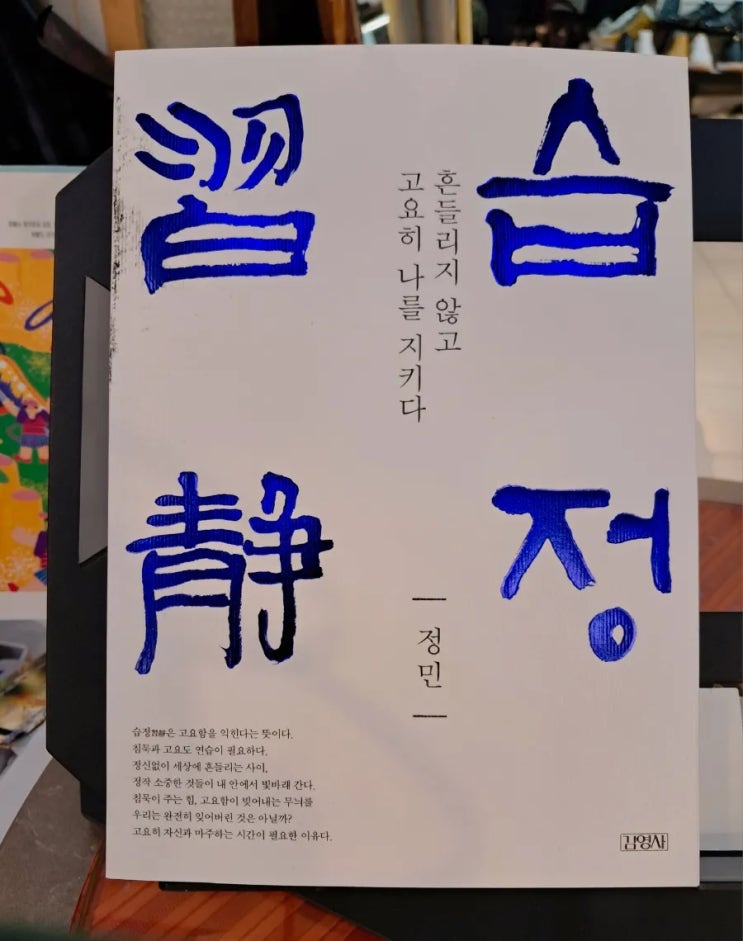 習 습
靜 정
흔들리지 않고
고요히 나를 지키다
정민
습정習靜은 고요함을 익힌다는 뜻이다.
침묵과 고요도 연습이 필요하다.
정신없이 세상에 흔들리는 사이,
정작 소중한 것들이 내 안에서 빛바래 간다.
침묵이 주는 힘, 고요함이 빚어내는 무늬를
우리는 완전히 잊어버린 것은 아닐까?
고요히 자신과 마주하는 시간이 필요한 이유다.
김영사